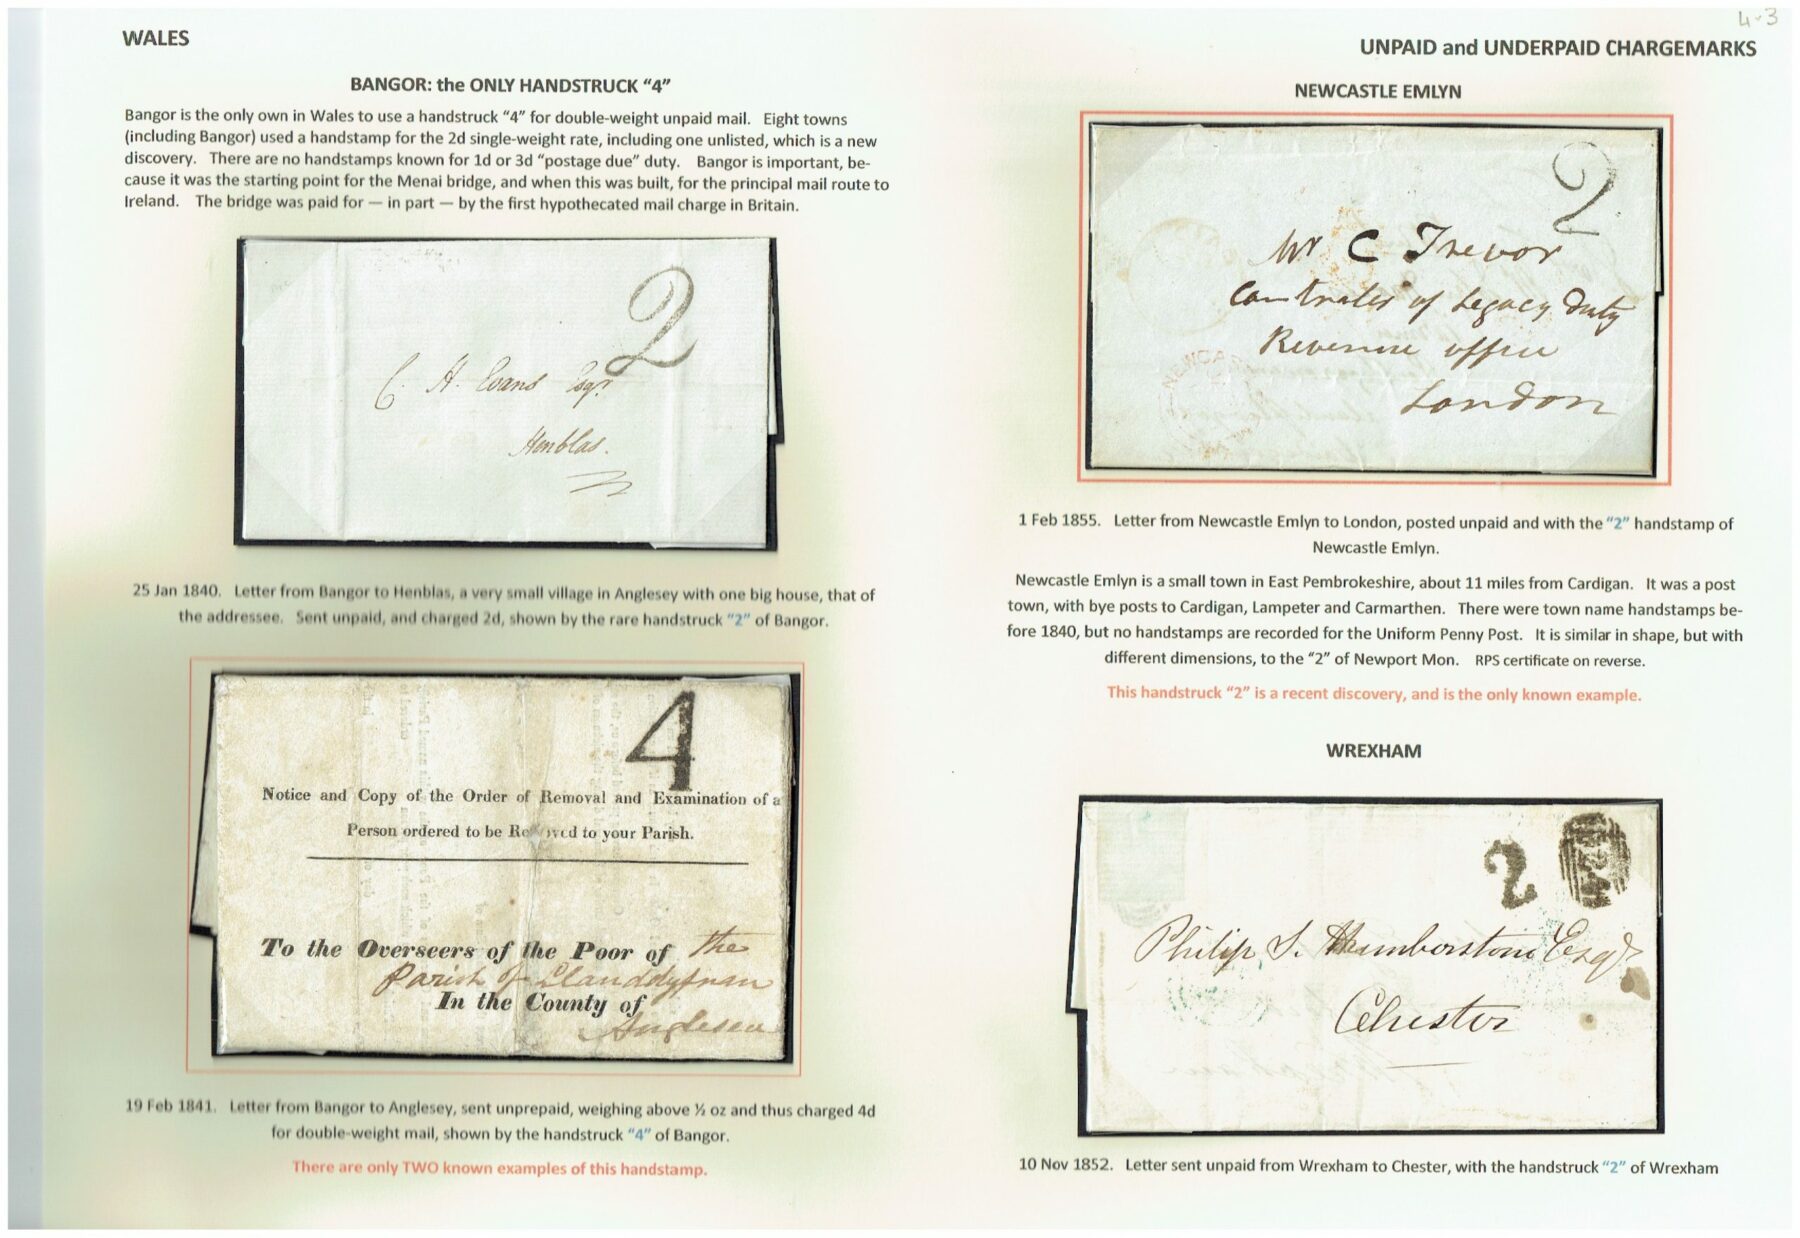 4-3
WALES
UNPAID and UNDERPAID CHARGEMARKS
BANGOR: the ONLY HANDSTRUCK “4”
Bangor is the only own in Wales to use a handstruck “4” for double-weight unpaid mail. Eight towns
(including Bangor) used a handstamp for the 2d single-weight rate, including one unlisted, which is a new
discovery. There are no handstamps known for 1d or 3d “postage due” duty. Bangor is important, be-
cause it was the starting point for the Menai bridge, and when this was built, for the principal mail route to
Ireland. The bridge was paid for — in part — by the first hypothecated mail charge in Britain.
2
C. H. Evans Esqr.
Henblas.
25 Jan 1840. Letter from Bangor to Henblas, a very small village in Anglesey with one big house, that of
the addressee. Sent unpaid, and charged 2d, shown by the rare handstruck “2” of Bangor.
4
Notice and Copy of the Order of Removal and Examination of a
Person ordered to be Removed to your Parish.
To the Overseers of the Poor of the
Parish of Llanddyfnan
In the County of
Anglesea
19 Feb 1841. Letter from Bangor to Anglesey, sent unprepaid, weighing above ½ oz and thus charged 4d
for double-weight mail, shown by the handstruck “4” of Bangor.
There are only TWO known examples of this handstamp.
NEWCASTLE EMLYN
2
Mr C Trevor
of Legacy Duty
Revenue office
London
1 Feb 1855. Letter from Newcastle Emlyn to London, posted unpaid and with the “2” handstamp of
Newcastle Emlyn.
Newcastle Emlyn is a small town in East Pembrokeshire, about 11 miles from Cardigan. It was a post
town, with bye posts to Cardigan, Lampeter and Carmarthen. There were town name handstamps be-
fore 1840, but no handstamps are recorded for the Uniform Penny Post. It is similar in shape, but with
different dimensions, to the “2” of Newport Mon. RPS certificate on reverse.
This handstruck “2” is a recent discovery, and is the only known example.
WREXHAM
2
Philip S. Humberstone Esqr
Chester
10 Nov 1852. Letter sent unpaid from Wrexham to Chester, with the handstruck “2” of Wrexham